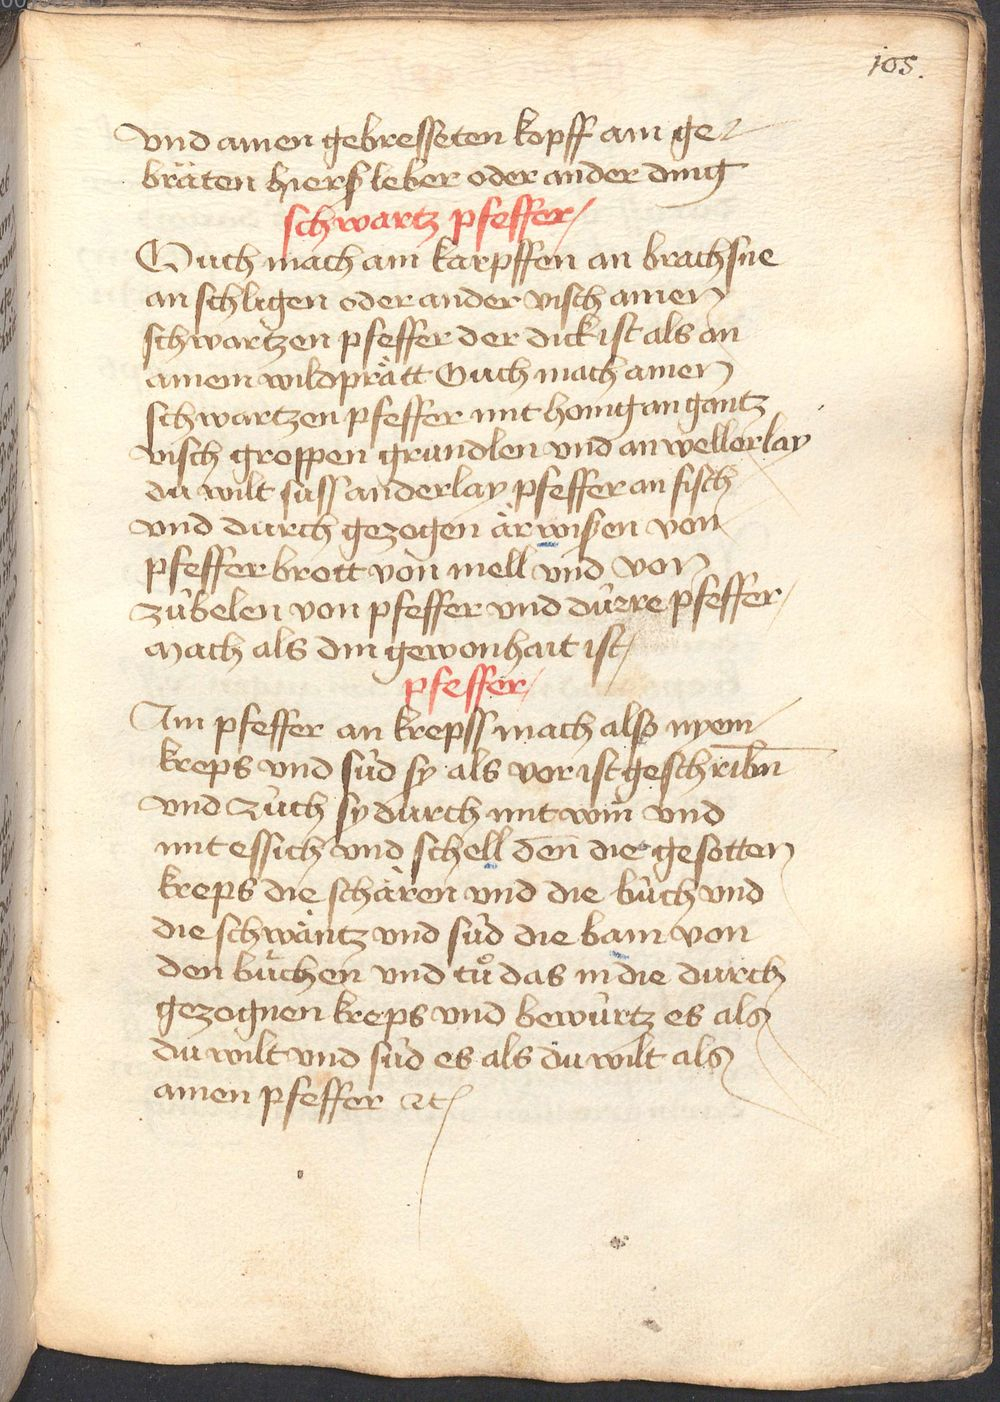 105.
vnd ainen gebresseten kopff ain ge
bräten hierss leber oder ander ding
schwartz pfeffer
Ouch mach ain karpffen an brachsne
an schligen oder ander visch ainen
schwartzen pfeffer der dick ist als an
ainem wildprätt Ouch mach ainen
schwartzen pfeffer mit honig an gantz
visch groppen grundlen vnd an wellerlay
du wilt suss anderlay pfeffer an fisch
vnd durch gezogen ärwissen von
pfeffer brott von mell vnd von
zübelen von pfeffer vnd dürre pfeffer
Mach als din gewonhait ist
pfeffer
Ain pfeffer an krepss mach also nyem
kreps vnd süd sy als vor ist geschribn
vnd züch sy durch mit win vnd
mit essich vnd schell den die gesotten
kreps die schären vnd die büch vnd
die schwäntz vnd süd die bain von
den büchen vnd tů das in die durch
gezognen kreps vnd bewürtz es als
du wilt vnd süd es als du wilt als
ainen pfeffer ⁊c